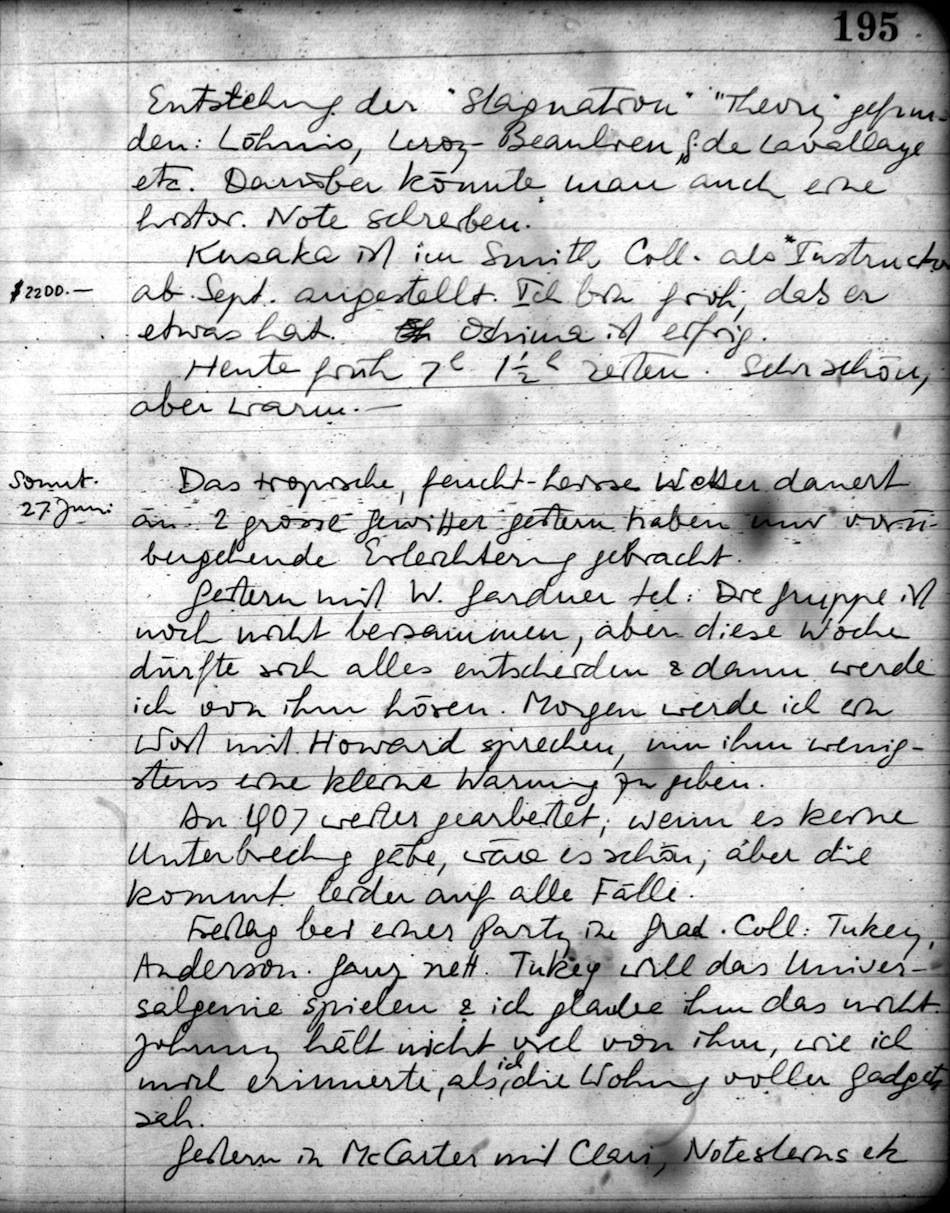 195
Entstehung der "Stagnation" "Theory" gefun-
den: Löhnis, Leroy-Beaulieu, & de Lavallaye
etc. Darüber könnte man auch eine
histor. Note schreiben.
Kusaka ist im Smith Coll. als "Instructor
$2200.—
ab Sept. angestellt. Ich bin froh, daß er
etwas hat. Oshima ist eifrig.
Heute früh 7h 1½h reiten. Sehr schön,
aber warm.—
Sonnt.
27 Juni
Das tropische, feucht-heisse Wetter dauert
an. 2 grosse Gewitter gestern haben nur vorü-
bergehende Erleichterung gebracht.
Gestern mit W. Gardner tel: Die Gruppe ist
noch nicht beisammen, aber diese Woche
dürfte sich alles entscheiden & dann werde
ich von ihm hören. Morgen werde ich ein
Wort mit Howard sprechen, um ihm wenig-
stens eine kleine Warnung zu geben.
An 1907 weiter gearbeitet; wenn es keine
Unterbrechung gäbe, wäre es schön; aber die
kommt leider auf alle Fälle.
Freitag bei einer Party in Grad. Coll: Tukey,
Anderson. Ganz nett. Tukey will das Univer-
salgenie spielen & ich glaube ihm das nicht.
Johnny hält nicht viel von ihm, wie ich
mich erinnerte, als ich die Wohng voller Gadgets
sah.
Gestern in McCarter mit Clari, Notesteins etc